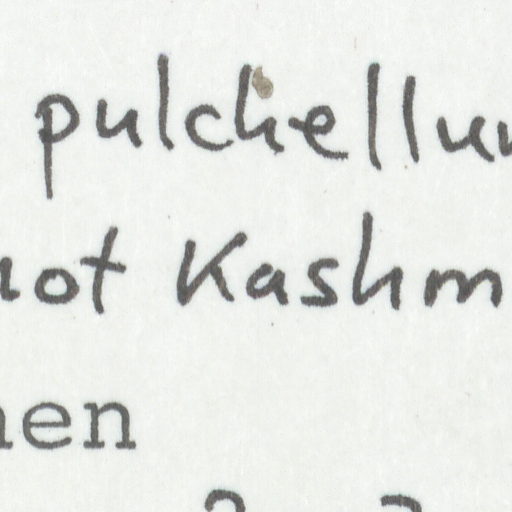 pulchellu
not Kashm
nen